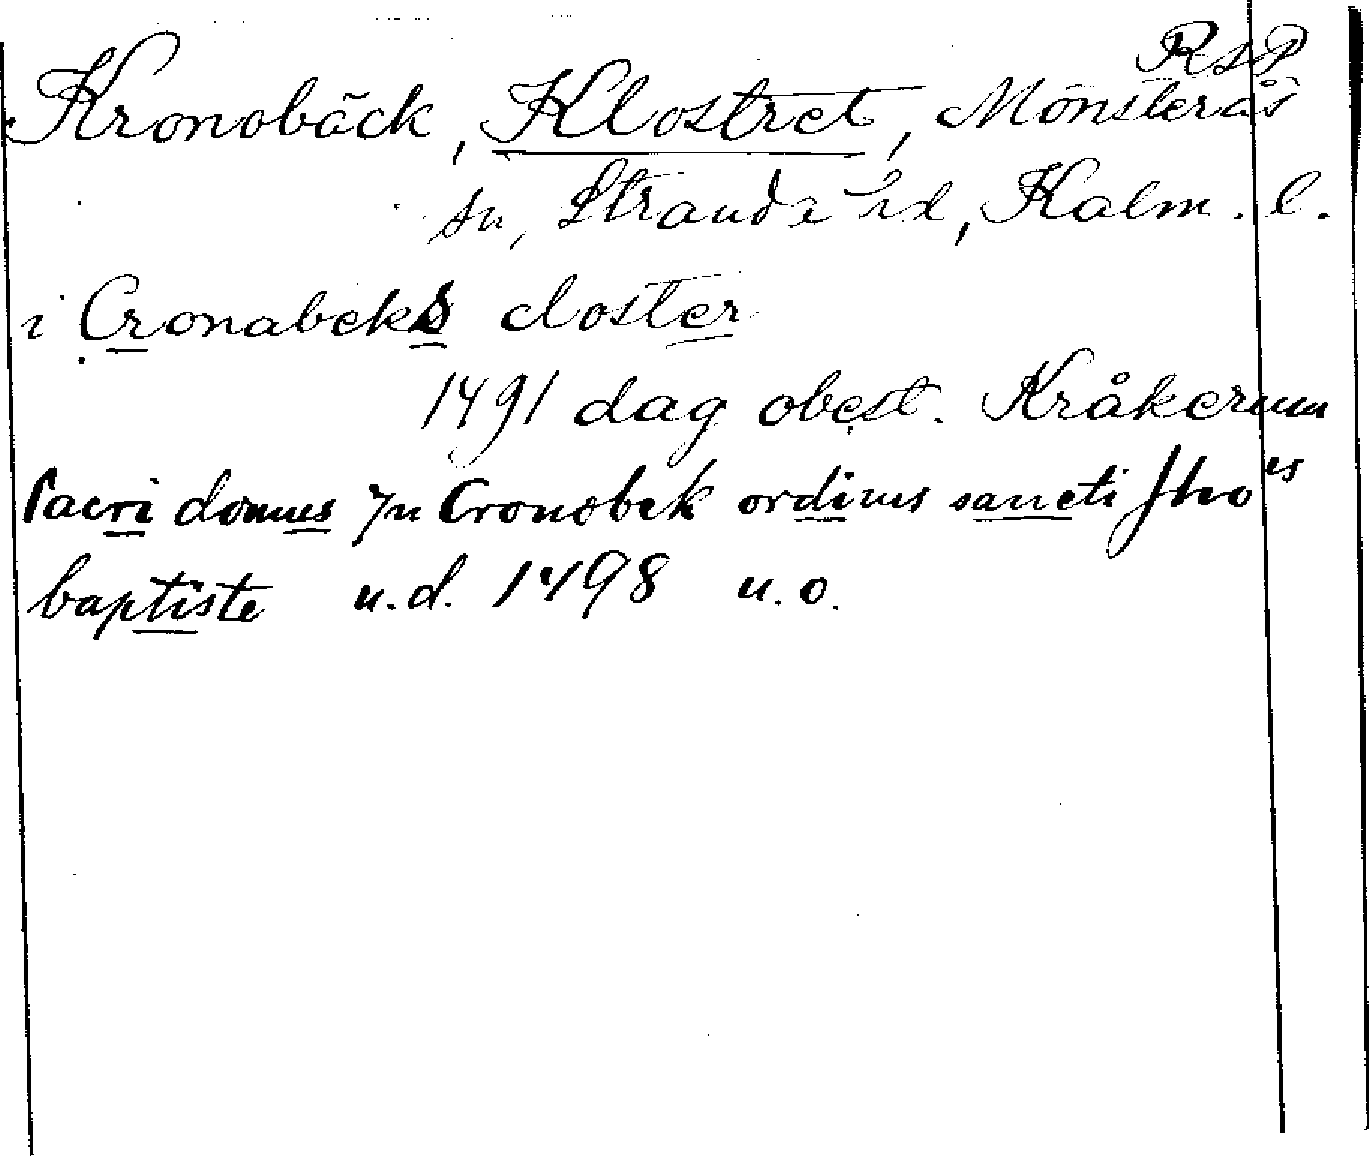 RAP
Kronobäck, Klostret, Mönsterås
sn, Stranda hd, Kalm. l.
i Cronabeks closter
1491 dag obest. Kråkerum
sacri domus Jn Cronobek ordinis sancti Jhois
baptiste u.d. 1498 u.o.